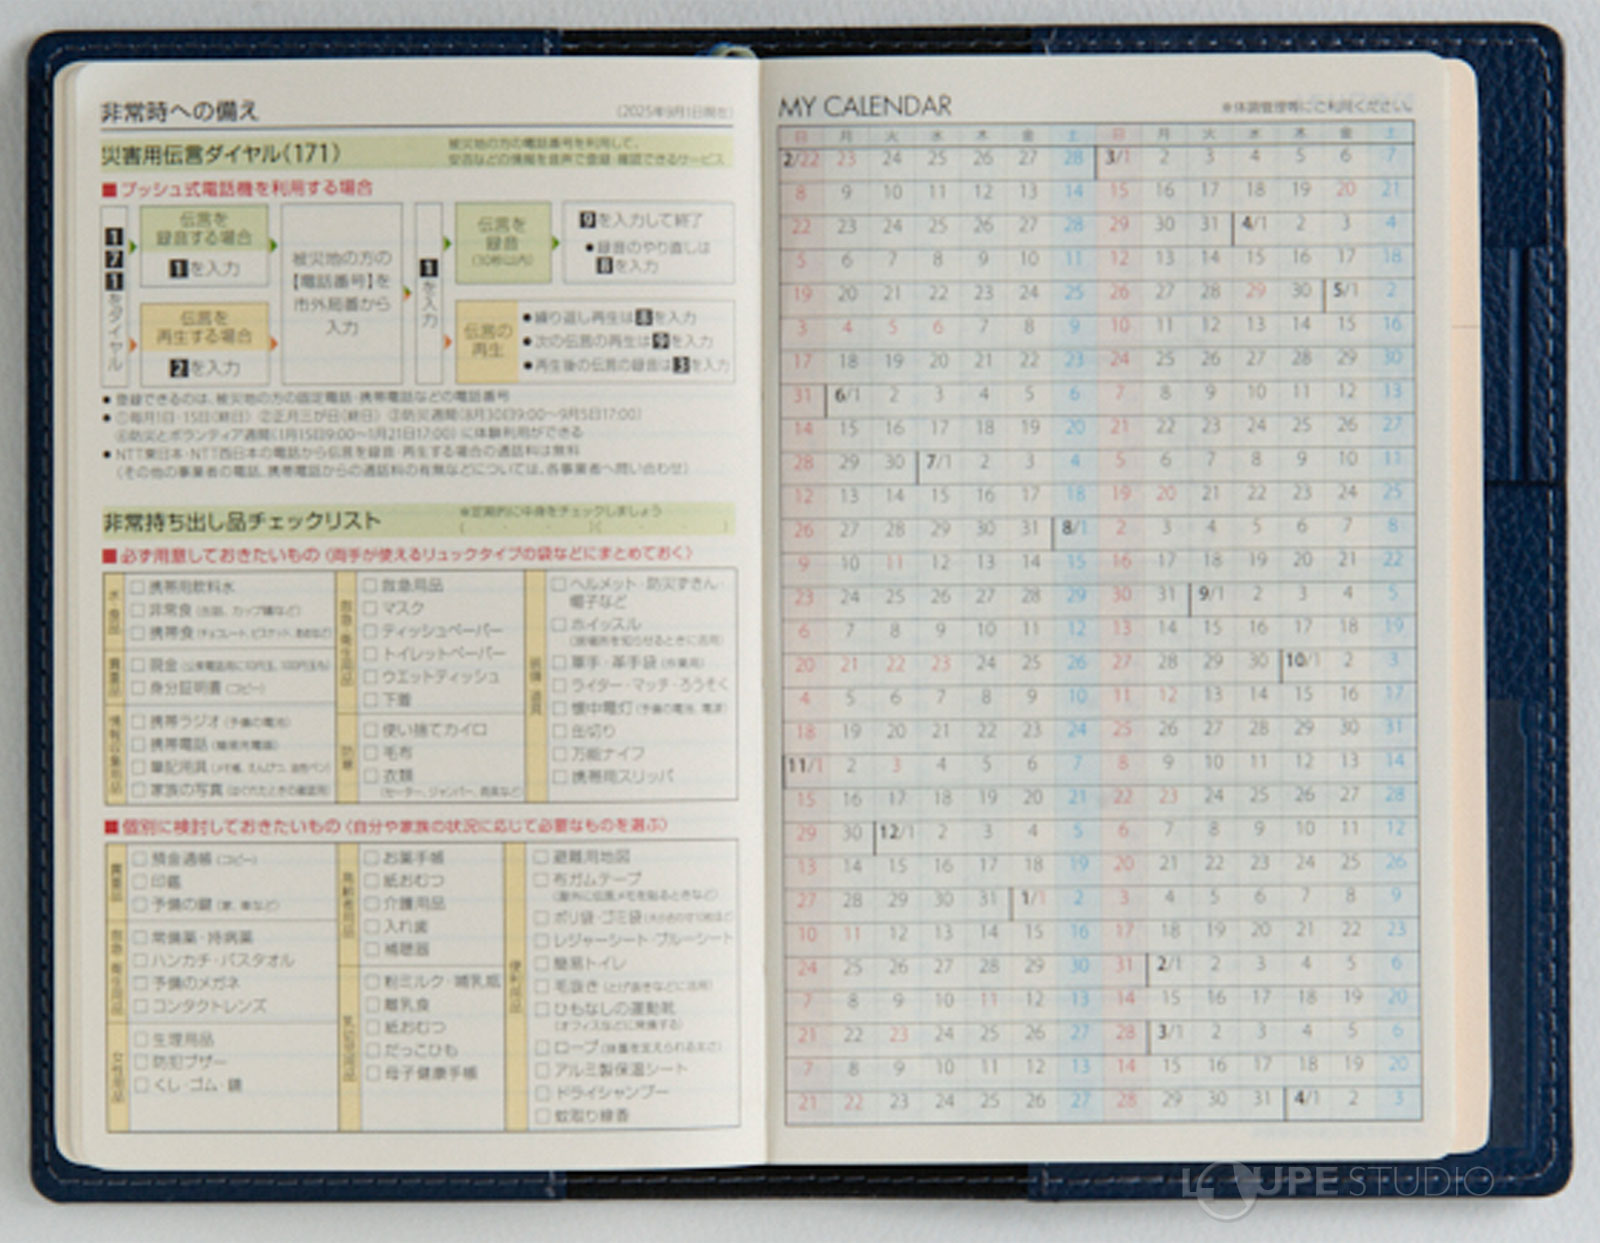 非常時への備え
(2025年9月1日現在)
災害用伝言ダイヤル(171)
被災地の方の電話番号を利用して、
安否などの情報を音声で登録・確認できるサービス
■プッシュ式電話機を利用する場合
171をダイヤル
伝言を
録音する場合
1を入力
伝言を
再生する場合
2を入力
被災地の方の
【電話番号】を
市外局番から
入力
1を入力
伝言を
録音
(30秒以内)
9を入力して終了
●録音のやり直しは
8を入力
伝言の
再生
●繰り返し再生は8を入力
●次の伝言の再生は9を入力
●再生後の伝言の録音は3を入力
●登録できるのは、被災地の方の固定電話・携帯電話などの電話番号
●①毎月1日・15日(終日) ②正月三が日(終日) ③防災週間(8月30日9:00〜9月5日17:00)
④防災とボランティア週間(1月15日9:00〜1月21日17:00)に体験利用ができる
●NTT東日本・NTT西日本の電話から伝言を録音・再生する場合の通話料は無料
(その他の事業者の電話、携帯電話からの通話料の有無などについては、各事業者へ問い合わせ)
非常持ち出し品チェックリスト
※定期的に中身をチェックしましょう
■必ず用意しておきたいもの〈両手が使えるリュックタイプの袋などにまとめておく〉
水・食品
□携帯用飲料水
□非常食(缶詰、カップ麺など)
□携帯食(チョコレート、ビスケット、あめなど)
貴重品
□現金(公衆電話用に10円玉、100円玉も)
□身分証明書(コピー)
□携帯ラジオ(予備の電池)
□携帯電話
□筆記用具(メモ帳、えんぴつ、油性ペン)
□家族の写真(はぐれたときの確認用)
救急・衛生用品
□救急用品
□マスク
□ティッシュペーパー
□トイレットペーパー
□ウエットティッシュ
□下着
防寒
□使い捨てカイロ
□毛布
□衣類
(セーター、ジャンパー、雨具など)
□ヘルメット・防災ずきん・
帽子など
□ホイッスル
(居場所を知らせるときに活用)
□軍手・革手袋(作業用)
□ライター・マッチ・ろうそく
□懐中電灯(予備の電池、電球)
□缶切り
□万能ナイフ
□携帯用スリッパ
■個別に検討しておきたいもの〈自分や家族の状況に応じて必要なものを選ぶ〉
貴重品
□預金通帳(コピー)
□印鑑
□予備の鍵(家、車など)
救急・衛生用品
□常備薬・持病薬
□ハンカチ・バスタオル
□予備のメガネ
□コンタクトレンズ
女性用品
□生理用品
□防犯ブザー
□くし・ゴム・鏡
高齢者用品
□お薬手帳
□紙おむつ
□介護用品
□入れ歯
□補聴器
乳幼児用品
□粉ミルク・哺乳瓶
□離乳食
□紙おむつ
□だっこひも
□母子健康手帳
便利用品
□避難用地図
□布ガムテープ
(屋外に伝言メモを貼るときなど)
□ポリ袋・ゴミ袋
□レジャーシート・ブルーシート
□簡易トイレ
□毛抜き(とげ抜きなどに活用)
□ひもなしの運動靴
(オフィスなどに常備する)
□ロープ(体重を支えられる太さ)
□アルミ製保温シート
□ドライシャンプー
□蚊取り線香
MY CALENDAR
※体調管理等にご利用ください。
日 月 火 水 木 金 土 日 月 火 水 木 金 土
2/22 23 24 25 26 27 28 3/1 2 3 4 5 6 7
8 9 10 11 12 13 14 15 16 17 18 19 20 21
22 23 24 25 26 27 28 29 30 31 4/1 2 3 4
5 6 7 8 9 10 11 12 13 14 15 16 17 18
19 20 21 22 23 24 25 26 27 28 29 30 5/1 2
3 4 5 6 7 8 9 10 11 12 13 14 15 16
17 18 19 20 21 22 23 24 25 26 27 28 29 30
31 6/1 2 3 4 5 6 7 8 9 10 11 12 13
14 15 16 17 18 19 20 21 22 23 24 25 26 27
28 29 30 7/1 2 3 4 5 6 7 8 9 10 11
12 13 14 15 16 17 18 19 20 21 22 23 24 25
26 27 28 29 30 31 8/1 2 3 4 5 6 7 8
9 10 11 12 13 14 15 16 17 18 19 20 21 22
23 24 25 26 27 28 29 30 31 9/1 2 3 4 5
6 7 8 9 10 11 12 13 14 15 16 17 18 19
20 21 22 23 24 25 26 27 28 29 30 10/1 2 3
4 5 6 7 8 9 10 11 12 13 14 15 16 17
18 19 20 21 22 23 24 25 26 27 28 29 30 31
11/1 2 3 4 5 6 7 8 9 10 11 12 13 14
15 16 17 18 19 20 21 22 23 24 25 26 27 28
29 30 12/1 2 3 4 5 6 7 8 9 10 11 12
13 14 15 16 17 18 19 20 21 22 23 24 25 26
27 28 29 30 31 1/1 2 3 4 5 6 7 8 9
10 11 12 13 14 15 16 17 18 19 20 21 22 23
24 25 26 27 28 29 30 31 2/1 2 3 4 5 6
7 8 9 10 11 12 13 14 15 16 17 18 19 20
21 22 23 24 25 26 27 28 3/1 2 3 4 5 6
7 8 9 10 11 12 13 14 15 16 17 18 19 20
21 22 23 24 25 26 27 28 29 30 31 4/1 2 3
LOUPE STUDIO